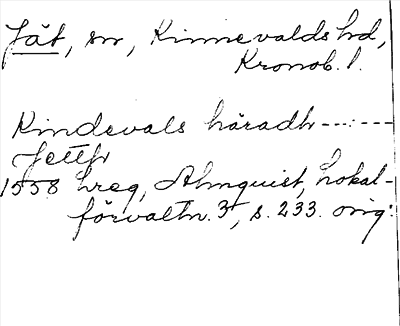 Jät, sn, Kinnevalds hrd,
Kronob. l.
Kindevals häradh --- : ---
Jettt
1558 hreg, Almquist, Lokal-
förvaltn. 3, s. 233. orig: